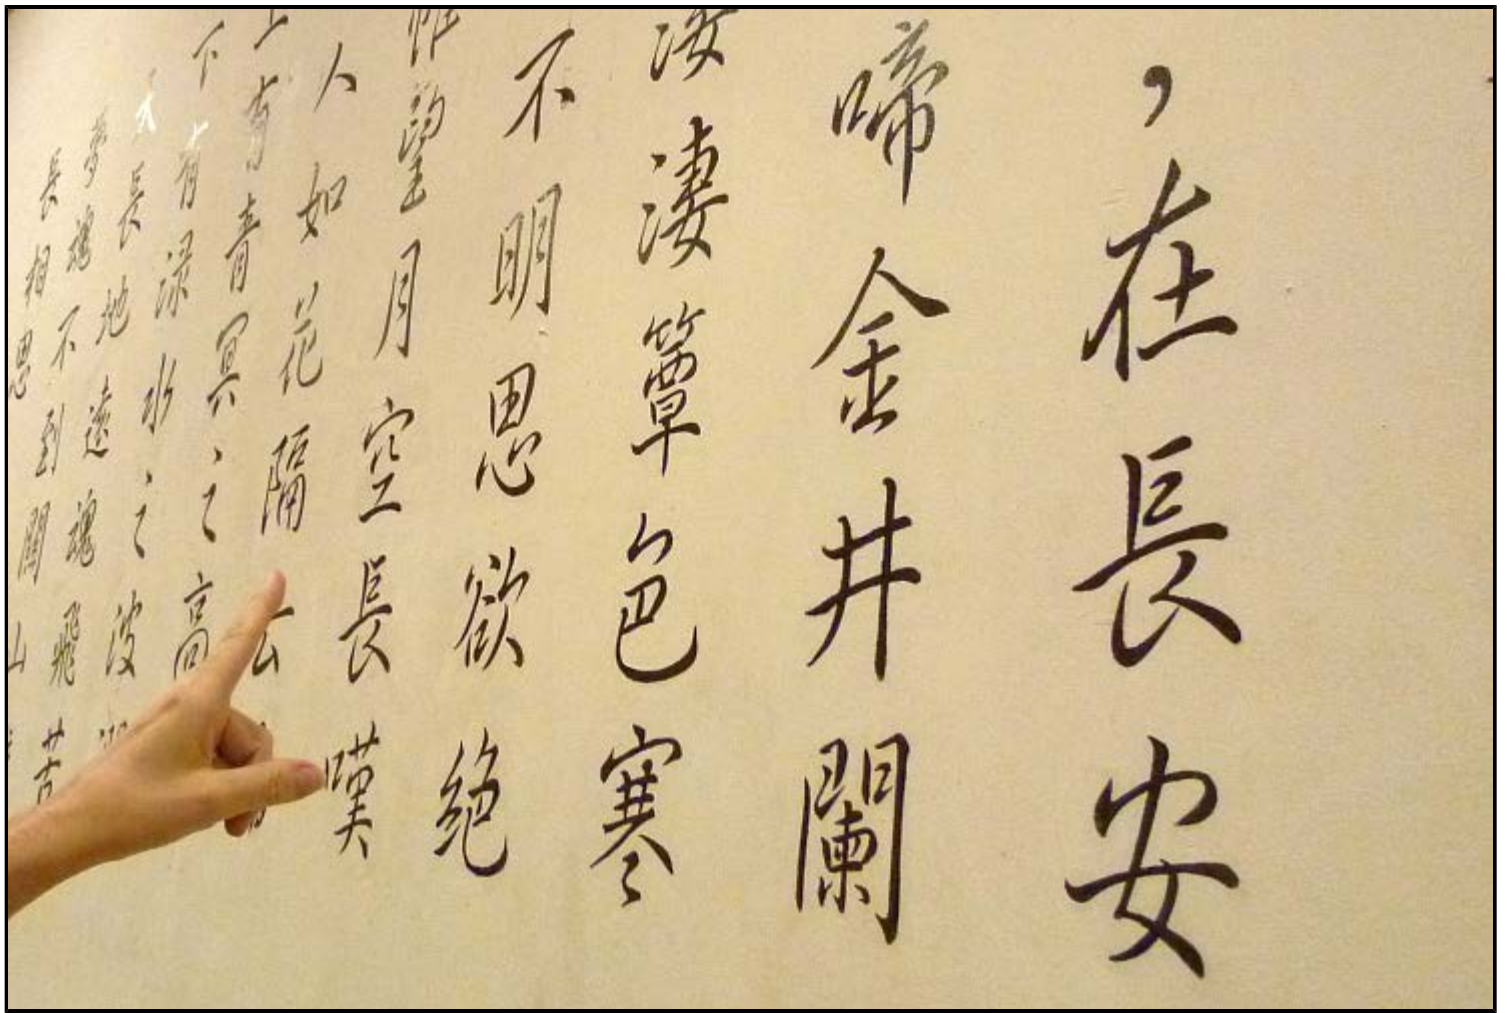 在長安
啼金井闌
淒淒簟色寒
不明思欲絕
帷望月空長嘆
人如花隔
上有青冥之高
下有淥水之波
天長地遠魂飛苦
夢魂不到關山
長相思